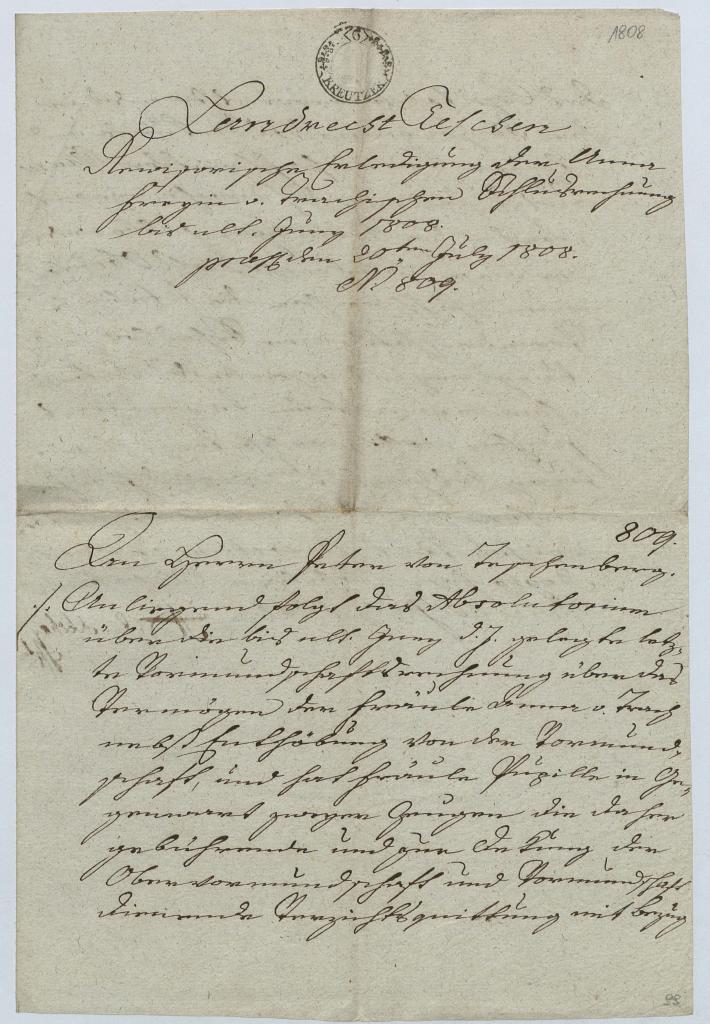 1808
6
KREUTZER
Landrecht Teschen
Revisorische Erledigung der Anna
Freyin v. Trachischen Schlußrechnung
bis ult. Juny 1808.
praes. den 20ten July 1808.
N 809.
809.
An Herrn Peter von Teschenberg.
./. Anliegend folgt das Absolutorium
über die bis ult. Juny d. J. gelegte letz-
te Vormundschaftsrechnung über das
Vermögen der Fräule Anna v. Trach
nebst Enthöbung von der Vormund-
schaft, und hat Fräule Pupille in Ge-
genwart zweyer Zeugen die daher
gebührende und zur Dekung der
Obervormundschaft und Vormundschaft
dienende Verzichtsquittung mit Bezug